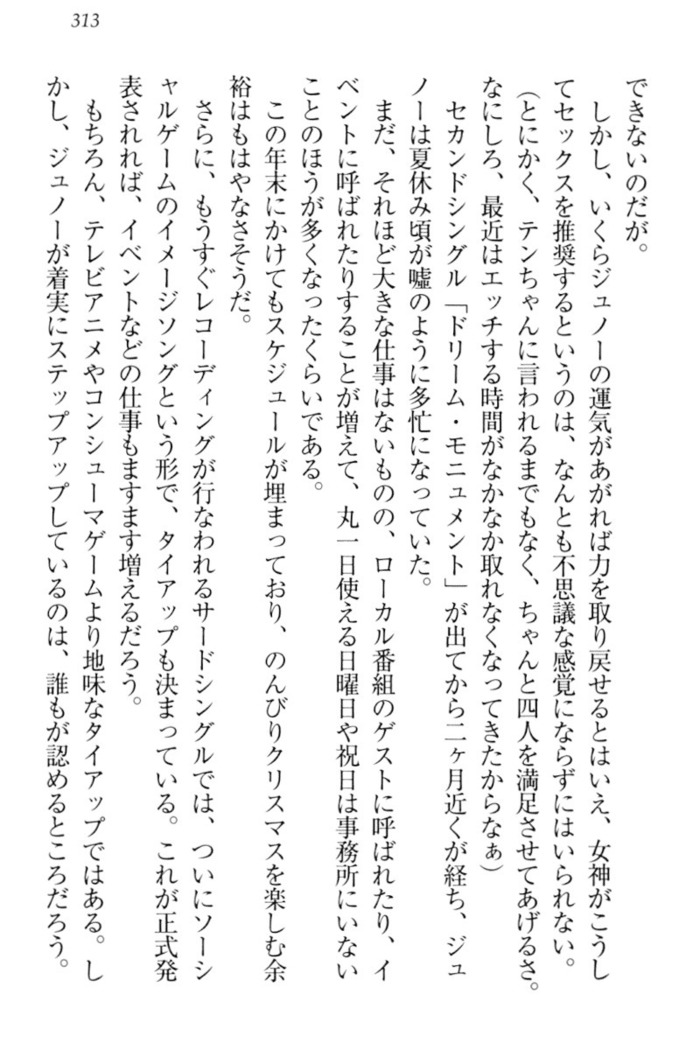 313
できないのだが。
しかし、いくらジュノーの運気があがれば力を取り戻せるとはいえ、女神がこうし
てセックスを推奨するというのは、なんとも不思議な感覚にならずにはいられない。
（とにかく、テンちゃんに言われるまでもなく、ちゃんと四人を満足させてあげるさ。
なにしろ、最近はエッチする時間がなかなか取れなくなってきたからなぁ）
セカンドシングル「ドリーム・モニュメント」が出てから二ヶ月近くが経ち、ジュ
ノーは夏休み頃が嘘のように多忙になっていた。
まだ、それほど大きな仕事はないものの、ローカル番組のゲストに呼ばれたり、イ
ベントに呼ばれたりすることが増えて、丸一日使える日曜日や祝日は事務所にいない
ことのほうが多くなったくらいである。
この年末にかけてもスケジュールが埋まっており、のんびりクリスマスを楽しむ余
裕はもはやなさそうだ。
さらに、もうすぐレコーディングが行なわれるサードシングルでは、ついにソーシ
ャルゲームのイメージソングという形で、タイアップも決まっている。これが正式発
表されれば、イベントなどの仕事もますます増えるだろう。
もちろん、テレビアニメやコンシューマゲームより地味なタイアップではある。し
かし、ジュノーが着実にステップアップしているのは、誰もが認めるところだろう。